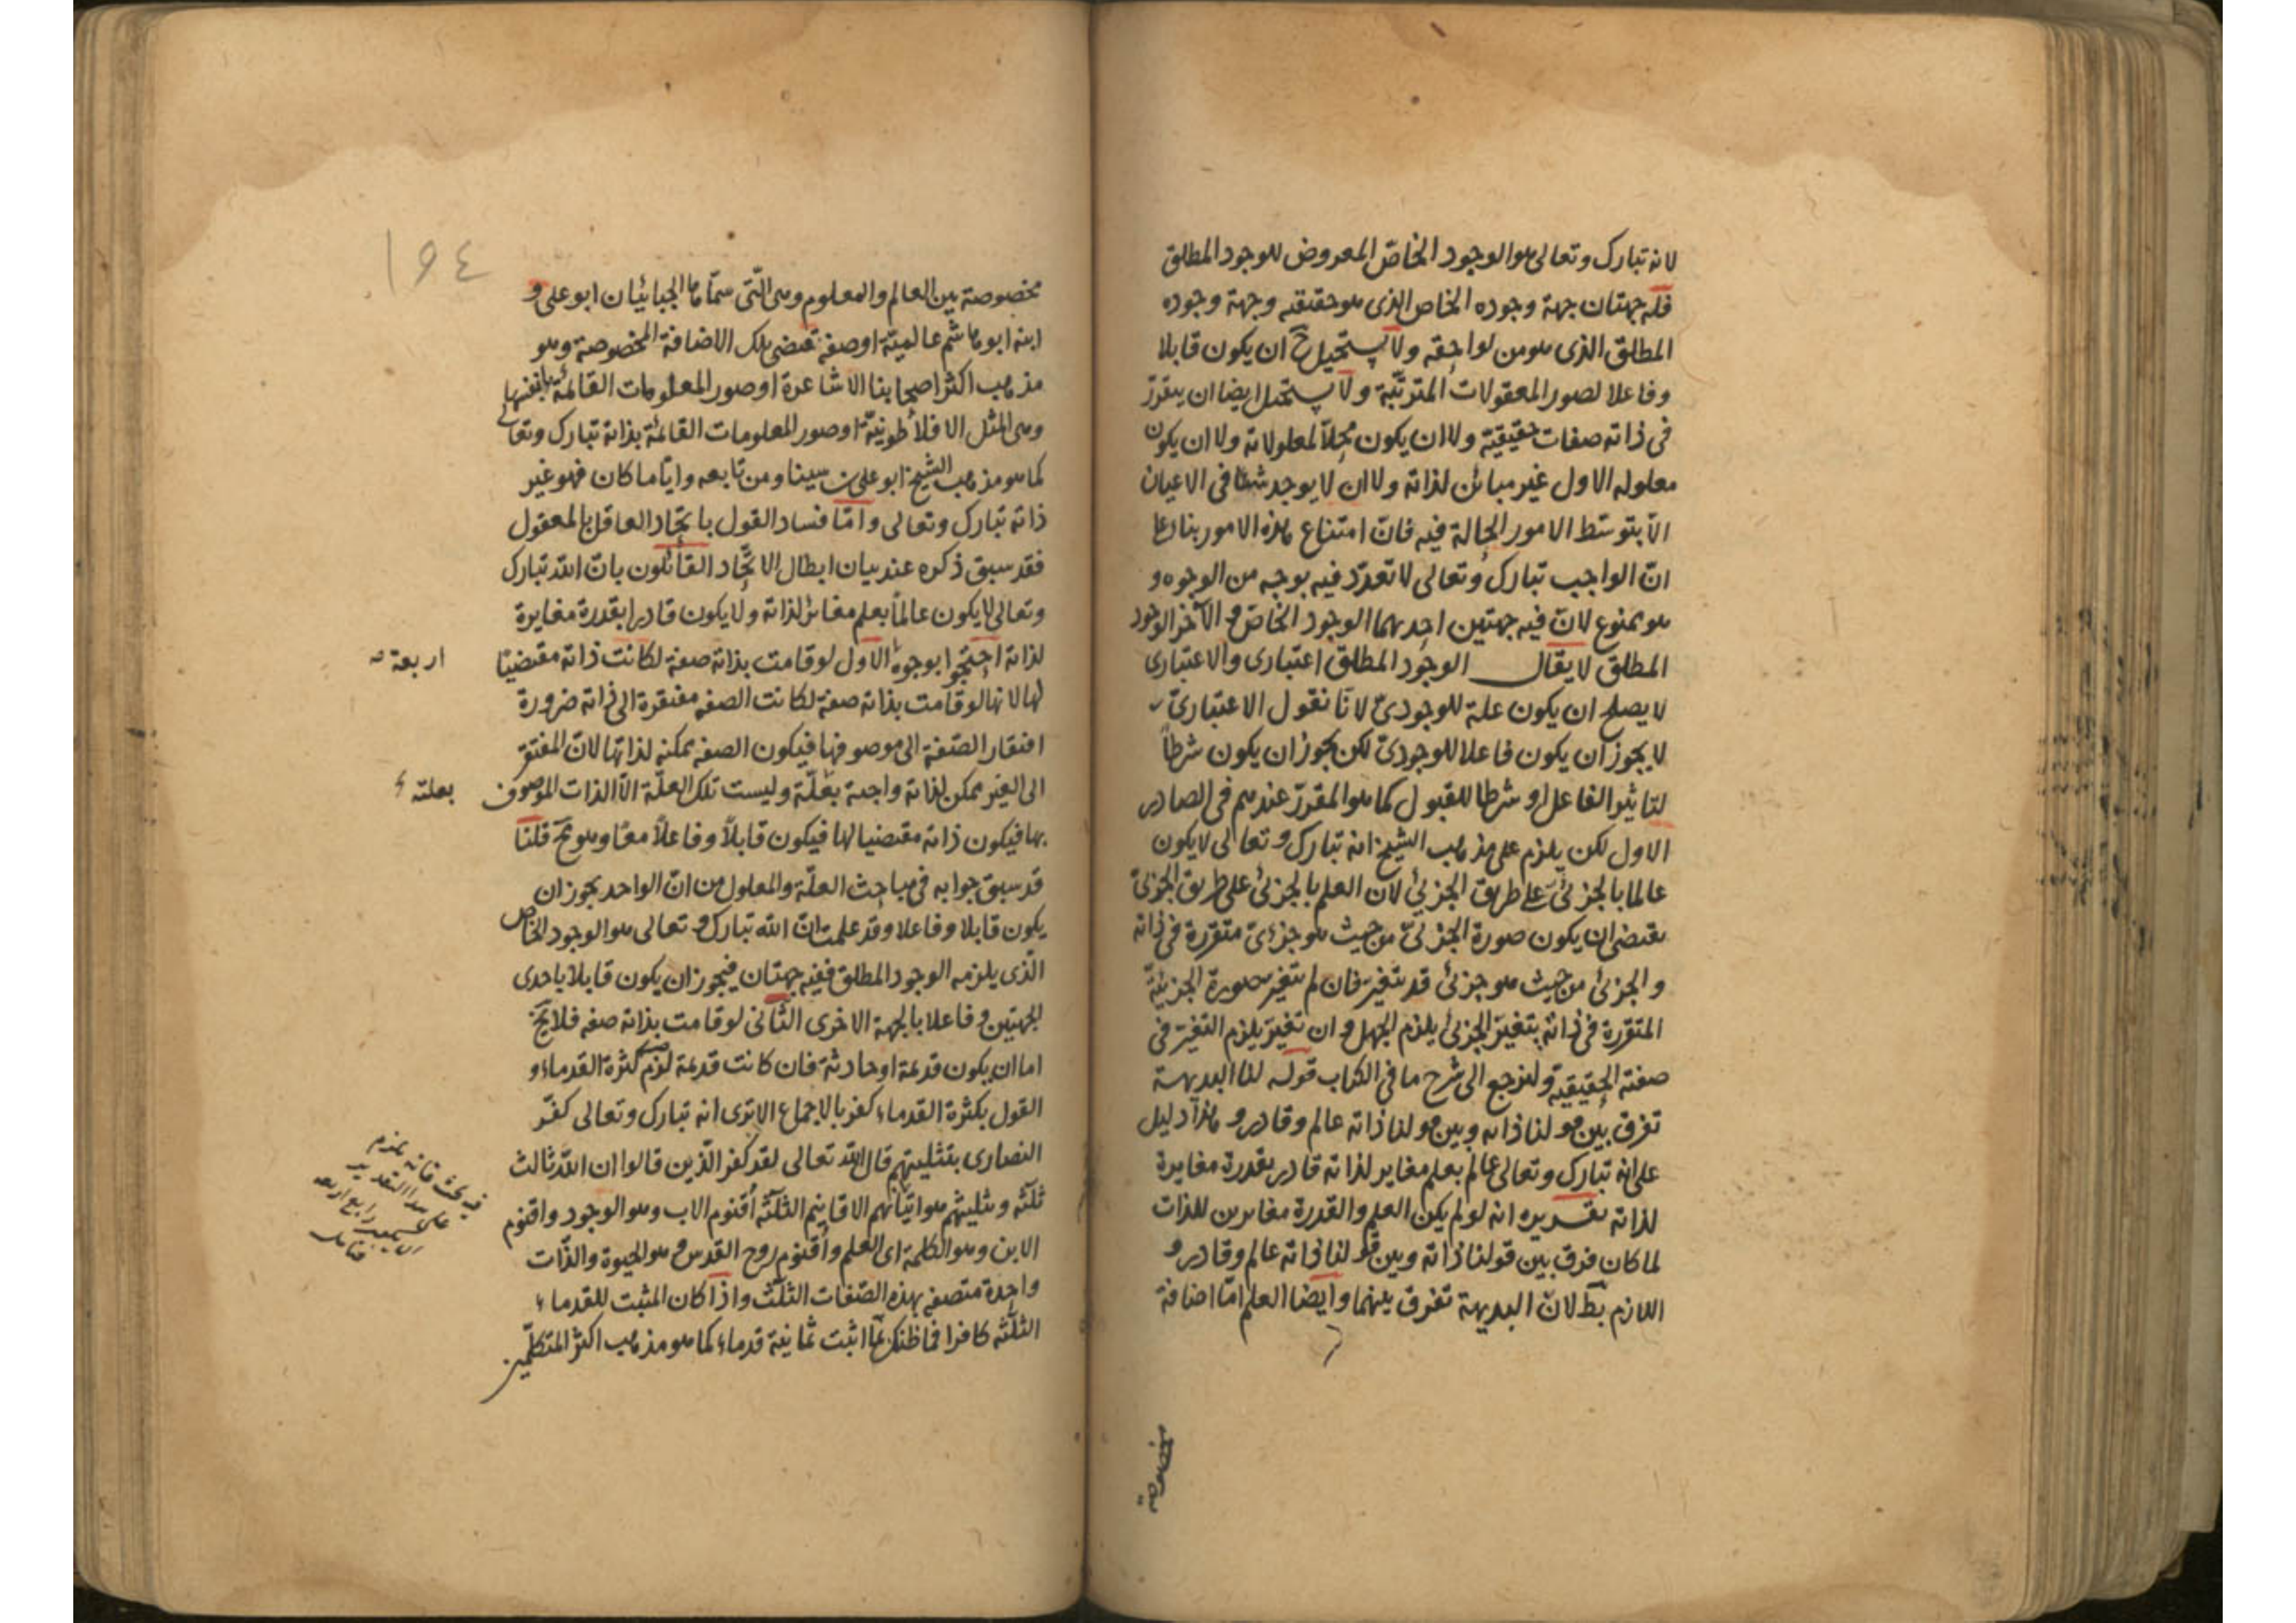 لانه تبارك وتعالى هو الوجود الخاص المعروض للوجود المطلق
فله جهتان جهة وجوده الخاص الذى هو حقيقته وجهة وجوده
المطلق الذى هو من لواحقه ولا يستحيل ح ان يكون قابلا
وفاعلا لصور المعقولات المترتبة ولا يستحيل ايضا ان يتقرر
فى ذاته صفات حقيقية ولا ان يكون محلا لمعلولاته ولا ان يكون
معلوله الاول غير مبائن لذاته ولا ان لا يوجد شيئا فى الاعيان
الا بتوسط الامور الحالة فيه فان امتناع هذه الامور بناء على
ان الواجب تبارك وتعالى لا تعدد فيه بوجه من الوجوه و
هو ممنوع لان فيه جهتين احدهما الوجود الخاص والآخر الوجود
المطلق لا يقال الوجود المطلق اعتبارى والاعتبارى
لا يصلح ان يكون علة للوجودىّ لانا نقول الاعتبارىّ
لا يجوز ان يكون فاعلا للوجودىّ لكن يجوز ان يكون شرطاً
لتاثير الفاعل او شرطا للقبول كما هو المقرر عندهم فى الصادر
الاول لكن يلزم على مذهب الشيخ انه تبارك وتعالى لا يكون
عالما بالجزئى على طريق الجزئى لان العلم بالجزئى على طريق الجزئى
يقتضى ان يكون صورة الجزئىّ من حيث هو جزئىّ متقررة فى ذاته
والجزئى من حيث هو جزئى قد يتغير فان لم يتغير صورة الجزئية
المتقررة فى ذاته بتغير الجزئى يلزم الجهل وان تغير يلزم التغير فى
صفته الحقيقية ولنرجع الى شرح ما فى الكتاب قوله لنا البديهة
تفرق بين قولنا ذاته وبين قولنا ذاته عالم وقادر و هذا دليل
على انه تبارك وتعالى عالم بعلم مغاير لذاته قادر بقدرة مغايرة
لذاته تقريره انه لو لم يكن العلم والقدرة مغايرين للذات
لما كان فرق بين قولنا ذاته وبين قولنا ذاته عالم وقادر و
اللازم بط لان البديهة تفرق بينهما وايضا العلم امّا اضافة
مخصوصة
١٩٤
مخصوصة بين العالم والمعلوم وهى التى سمّاها الجبائيان ابو على و
ابنه ابو هاشم عالمية او صفة تقتضى تلك الاضافة المخصوصة وهو
مذهب اكثر اصحابنا الاشاعرة او صور المعلومات القائمة بانفسها
وهى المثل الافلاطونية او صور المعلومات القائمة بذاته تبارك وتعالى
كما هو مذهب الشيخ ابو على بن سينا ومن تابعه وايّاما كان فهو غير
ذاته تبارك وتعالى وامّا فساد القول باتحاد العاقل بالمعقول
فقد سبق ذكره عند بيان ابطال الاتحاد القائلون بان الله تبارك
وتعالى لا يكون عالماً بعلم مغائر لذاته ولا يكون قادرا بقدرة مغايرة
لذاته احتجوا بوجوه الاول لو قامت بذاته صفة لكانت ذاته مقتضيًا
اربعة
لها لانها لو قامت بذاته صفة لكانت الصفة مفتقرة الى ذاته ضرورة
افتقار الصّفة الى موصوفها فيكون الصفة ممكنة لذاتها لان المفتقر
الى الغير ممكن لذاته واجبة بعلّة وليست تلك العلّة الا الذات الموصوف
بعلته
بها فيكون ذاته مقتضيا لها فيكون قابلاً وفاعلاً معًا وهو مح قلنا
قد سبق جوابه فى مباحث العلّة والمعلول من ان الواحد يجوز ان
يكون قابلا وفاعلا وقد علمت ان الله تبارك وتعالى هو الوجود الخاص
الّذى يلزمه الوجود المطلق ففيه جهتان فيجوز ان يكون قابلا باحدى
الجهتين وفاعلا بالجهة الاخرى الثانى لو قامت بذاته صفة فلا يخ
اما ان يكون قديمة او حادثة فان كانت قديمة لزم كثرة القدماء و
القول بكثرة القدماء كفر بالاجماع الا ترى انه تبارك وتعالى كفّر
النصارى بتثليثهم قال الله تعالى لقد كفر الّذين قالوا ان الله ثالث
ثلثة وتثليثهم هو اثباتهم الاقانيم الثلثة أقنوم الاب وهو الوجود واقنوم
الابن وهو الكلمة اى العلم وأقنوم روح القدس وهو الحيوة والذّات
واحدة متصفة بهذه الصّفات الثلث واذا كان المثبت للقدماء
الثلثة كافرا فما ظنك بمن اثبت ثمانية قدماء كما هو مذهب اكثر المتكلّمين
فيه بحث فانه يلزم